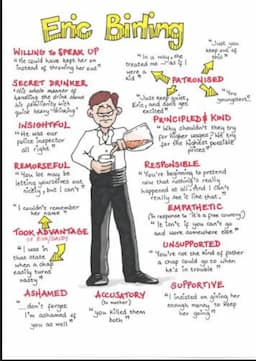 Eric Birling
WILLING TO SPEAK UP
"He could have kept her on
instead of throwing her out"
SECRET DRINKER
"His whole manner of
handling the drink shows
his familiarity with
quick heavy drinking"
INSIGHTFUL
"He was our
police inspector
all right"
REMORSEFUL
"You lot may be
letting yourselves out
nicely, but I can't"
"I couldn't remember
her name"
TOOK ADVANTAGE
OF EVA/DAISY
"I was in
that state
when a
chap
easily turns
nasty"
ASHAMED
"...don't forget
I'm ashamed of
you as well"
"In a way, she
treated me - as if I
were a
kid"
"Just you
keep out of
this"
PATRONISED
"Just keep quiet,
Eric, and don't get
excited"
"You
youngsters"
PRINCIPLED & KIND
"Why shouldn't they try
for higher wages? We try
for the highest possible
prices"
RESPONSIBLE
"You're beginning to pretend
now that nothing's really
happened at all. And I can't
really see it like that."
EMPATHETIC
(In response to "it's a free country")
"It isn't if you can't go
and work somewhere else"
UNSUPPORTED
"You're not the kind of father
a chap could go to when
he's in trouble"
ACCUSATORY
(to mother)
"you killed them
both"
SUPPORTIVE
"I insisted on giving her
enough money to keep
her going"